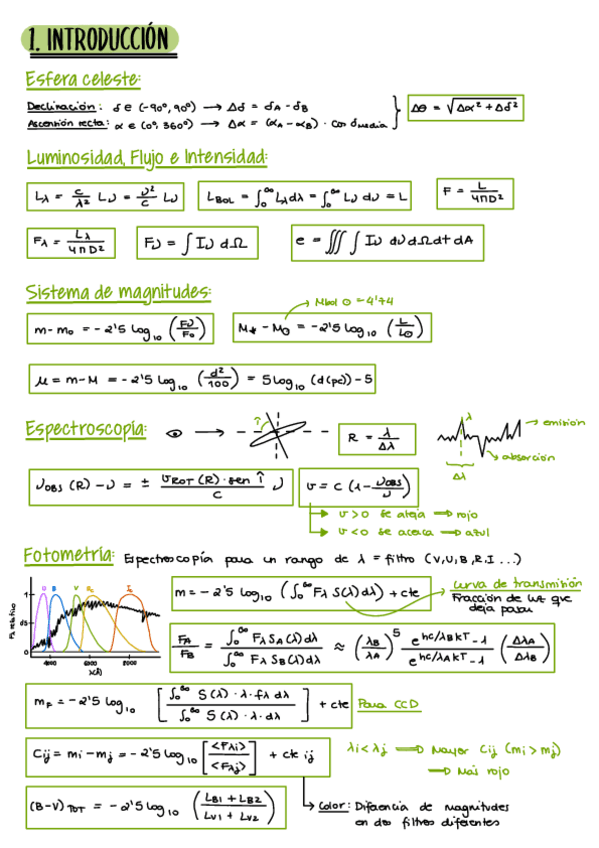 1. INTRODUCCIÓN
Esfera celeste:
Declinación: δ ∈ (-90°, 90°) → Δδ = δA - δB
Ascensión recta: α ∈ (0°, 360°) → Δα = (αA - αB) · cos δmedia
Δθ = √(Δα² + Δδ²)
Luminosidad, Flujo e Intensidad:
Lλ = c/λ² Lν = ν²/c Lν
LBOL = ∫₀^∞ Lλ dλ = ∫₀^∞ Lν dν = L
F = L/4πD²
Fλ = Lλ/4πD²
Fν = ∫ Iν dΩ
e = ∭∫ Iν dν dΩ dt dA
Sistema de magnitudes:
Mbol ⊙ = 4'74
m - m₀ = -2'5 log₁₀ (Fν/F₀)
M* - M⊙ = -2'5 log₁₀ (L/L⊙)
μ = m - M = -2'5 log₁₀ (d²/100) = 5 log₁₀ (d(pc)) - 5
Espectroscopía:
î
R = λ/Δλ
λ
emisión
absorción
Δλ
νOBS (R) - ν = ± (vROT (R) · sen î / c) ν
v = c (1 - νOBS/ν)
v > 0 se aleja → rojo
v < 0 se acerca → azul
Fotometría: Espectroscopía para un rango de λ = filtro (V, U, B, R, I ...)
U B V Rc Ic
Fλ relativo
1
0.5
0
4000 6000 8000
λ(Å)
m = -2'5 log₁₀ (∫₀^∞ Fλ S(λ) dλ) + cte
Curva de transmisión
Fracción de luz que
deja pasar
FA/FB = ∫₀^∞ Fλ SA(λ) dλ / ∫₀^∞ Fλ SB(λ) dλ ≈ (λB/λA)⁵ (e^(hc/λBkT) - 1)/(e^(hc/λAkT) - 1) (ΔλA/ΔλB)
mF = -2'5 log₁₀ [∫₀^∞ S(λ) · λ · fλ dλ / ∫₀^∞ S(λ) · λ · dλ] + cte Para CCD
Cij = mi - mj = -2'5 log₁₀ [<Fλi>/<Fλj>] + cte ij
λi < λj ⟹ Mayor Cij (mi > mj)
⟹ Más rojo
(B-V)TOT = -2'5 log₁₀ (LB1 + LB2 / LV1 + LV2)
Color: Diferencia de magnitudes
en dos filtros diferentes